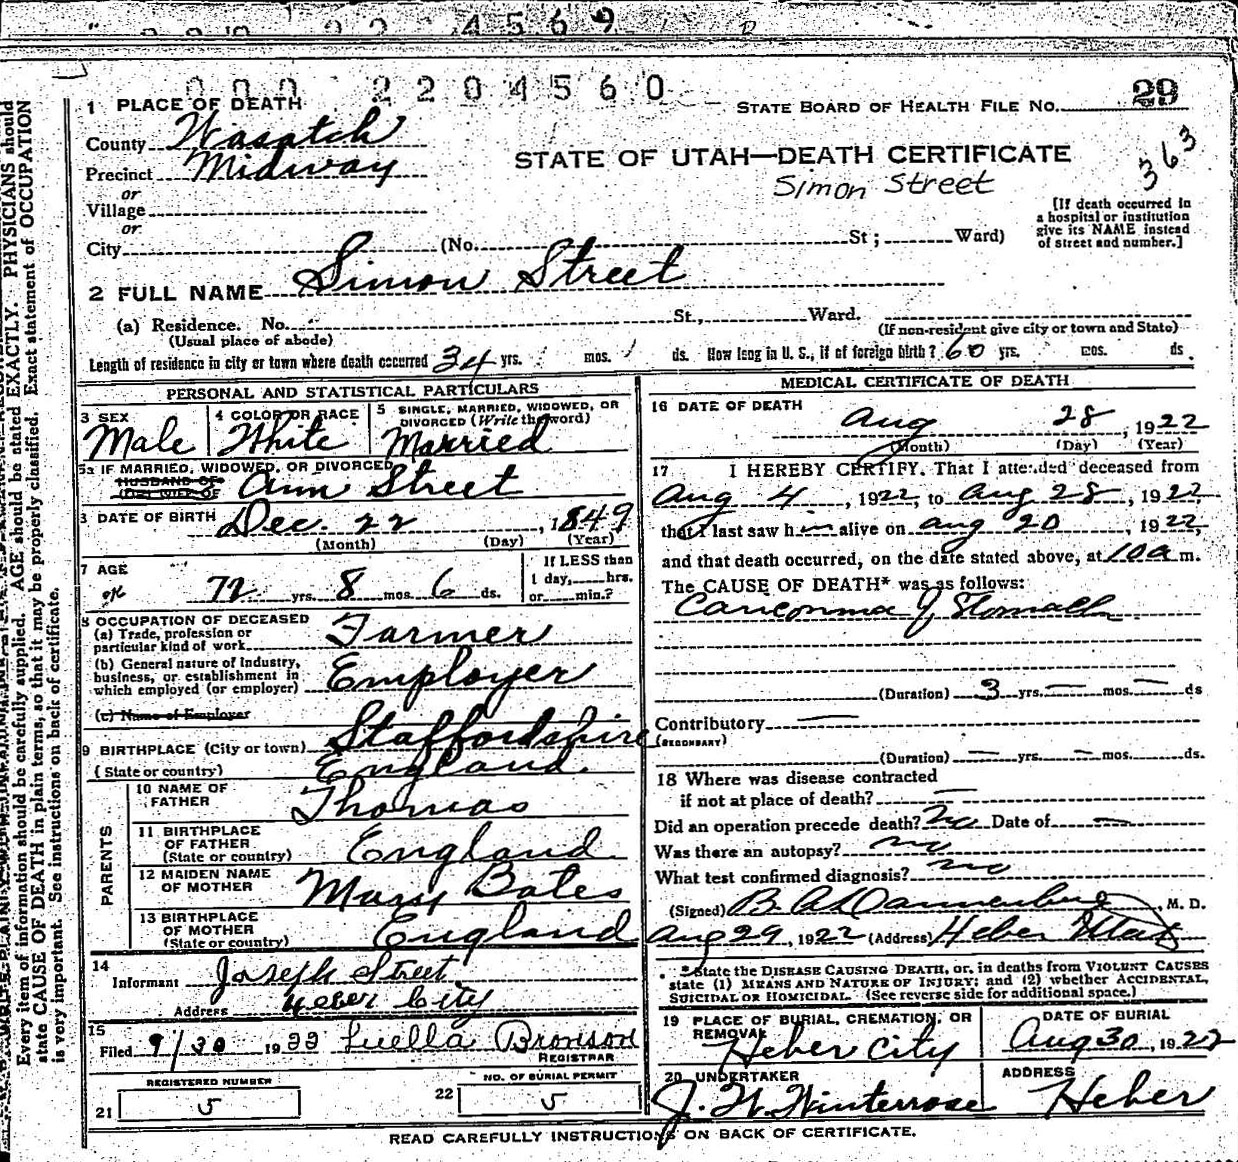 4569
000 2204560
STATE BOARD OF HEALTH FILE NO. 29
363
1 PLACE OF DEATH
County Wasatch
Precinct Midway
or
Village
or
City (No. St; Ward)
STATE OF UTAH—DEATH CERTIFICATE
Simon Street
[If death occurred in
a hospital or institution
give its NAME instead
of street and number.]
2 FULL NAME Simon Street
(a) Residence. No. St., Ward.
(Usual place of abode) (If non-resident give city or town and State)
Length of residence in city or town where death occurred 34 yrs. mos. ds. How long in U. S., if of foreign birth? 60 yrs. mos. ds.
PERSONAL AND STATISTICAL PARTICULARS
3 SEX
Male
4 COLOR OR RACE
White
5 SINGLE, MARRIED, WIDOWED, OR
DIVORCED (Write the word)
Married
5a IF MARRIED, WIDOWED, OR DIVORCED
HUSBAND OF
(OR) WIFE OF Ann Street
3 DATE OF BIRTH Dec. 22, 1849
(Month) (Day) (Year)
7 AGE
ok 72 yrs. 8 mos. 6 ds.
If LESS than
1 day, hrs.
or min.?
8 OCCUPATION OF DECEASED
(a) Trade, profession or
particular kind of work Farmer
(b) General nature of Industry,
business, or establishment in
which employed (or employer) Employer
(c) Name of Employer
9 BIRTHPLACE (City or town) Staffordshire
(State or country) England.
PARENTS
10 NAME OF
FATHER Thomas
11 BIRTHPLACE
OF FATHER
(State or country) England.
12 MAIDEN NAME
OF MOTHER Mary Bates
13 BIRTHPLACE
OF MOTHER
(State or country) England
14
Informant Joseph Street
Address Heber City
15
Filed 9/30 1922 Luella Bronson
REGISTRAR
REGISTERED NUMBER
21 5
NO. OF BURIAL PERMIT
22 5
MEDICAL CERTIFICATE OF DEATH
16 DATE OF DEATH
Aug 28, 1922
(Month) (Day) (Year)
17 I HEREBY CERTIFY. That I attended deceased from
Aug 4, 1922, to Aug 28, 1922,
that I last saw him alive on Aug 20, 1922,
and that death occurred, on the date stated above, at 10 a m.
The CAUSE OF DEATH* was as follows:
Carcinoma of Stomach
(Duration) 3 yrs. — mos. — ds
Contributory —
(SECONDARY)
(Duration) — yrs. — mos. ds.
18 Where was disease contracted
if not at place of death? —
Did an operation precede death? No Date of —
Was there an autopsy? no
What test confirmed diagnosis? no
(Signed) B. A. Dannenberg, M. D.
Aug 29, 1922 (Address) Heber Utah
*State the DISEASE CAUSING DEATH, or, in deaths from VIOLENT CAUSES
state (1) MEANS AND NATURE OF INJURY; and (2) whether ACCIDENTAL,
SUICIDAL or HOMICIDAL. (See reverse side for additional space.)
19 PLACE OF BURIAL, CREMATION, OR
REMOVAL
Heber City
DATE OF BURIAL
Aug 30, 1922
20 UNDERTAKER
J. W. Winterrose
ADDRESS
Heber
READ CAREFULLY INSTRUCTIONS ON BACK OF CERTIFICATE.
Every item of information should be carefully supplied. AGE should be stated EXACTLY. PHYSICIANS should
state CAUSE OF DEATH in plain terms, so that it may be properly classified. Exact statement of OCCUPATION
is very important. See instructions on back of certificate.